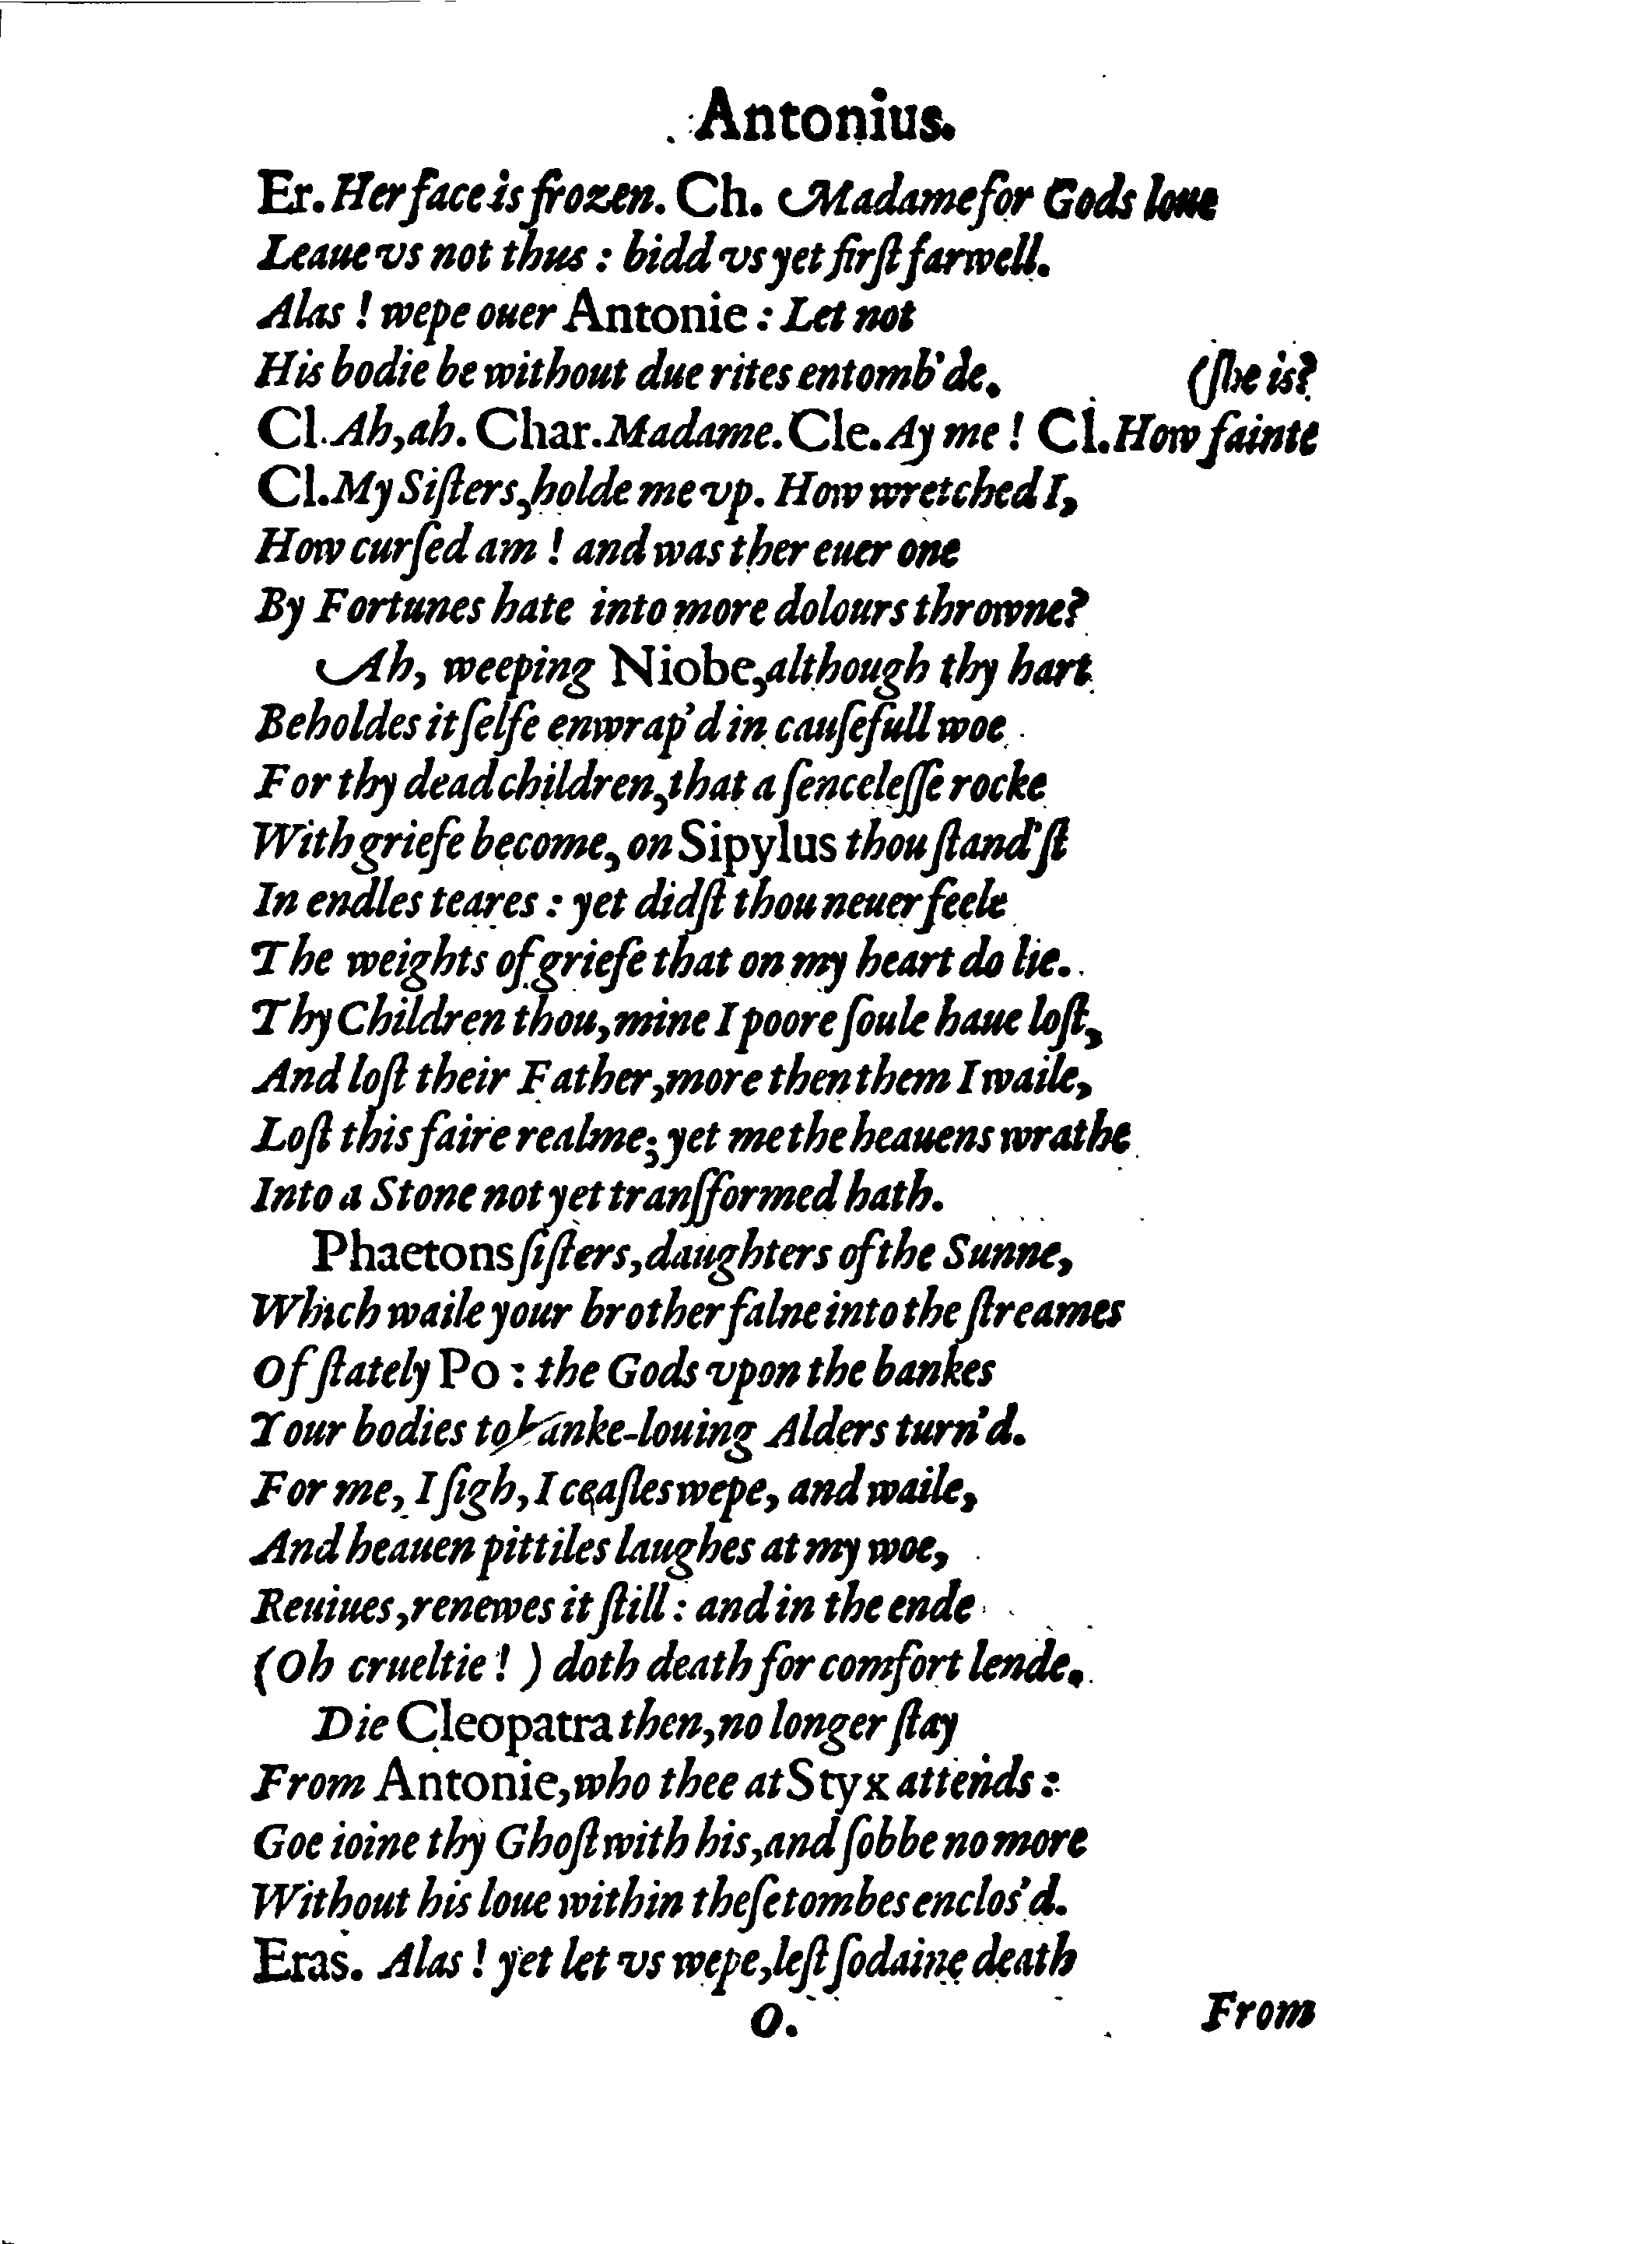 Antonius.
Er. Her face is frozen. Ch. Madame for Gods loue
Leaue vs not thus : bidd vs yet firſt farwell.
Alas ! wepe ouer Antonie : Let not
His bodie be without due rites entomb'de.
(ſhe is?
Cl. Ah, ah. Char. Madame. Cle. Ay me ! Cl. How fainte
Cl. My Siſters, holde me vp. How wretched I,
How curſed am ! and was ther euer one
By Fortunes hate into more dolours throwne?
Ah, weeping Niobe, although thy hart
Beholdes it ſelfe enwrap'd in cauſefull woe
For thy dead children, that a ſenceleſſe rocke
With griefe become, on Sipylus thou ſtand'ſt
In endles teares : yet didſt thou neuer feele
The weights of griefe that on my heart do lie.
Thy Children thou, mine I poore ſoule haue loſt,
And loſt their Father, more then them I waile,
Loſt this faire realme; yet me the heauens wrathe
Into a Stone not yet tranſformed hath.
Phaetons ſiſters, daughters of the Sunne,
Which waile your brother falne into the ſtreames
Of ſtately Po : the Gods vpon the bankes
Your bodies to banke-louing Alders turn'd.
For me, I ſigh, I ceaſles wepe, and waile,
And heauen pittiles laughes at my woe,
Reuiues, renewes it ſtill : and in the ende
(Oh crueltie ! ) doth death for comfort lende.
Die Cleopatra then, no longer ſtay
From Antonie, who thee at Styx attends :
Goe ioine thy Ghoſt with his, and ſobbe no more
Without his loue within theſe tombes enclos'd.
Eras. Alas ! yet let vs wepe, leſt ſodaine death
O.
From